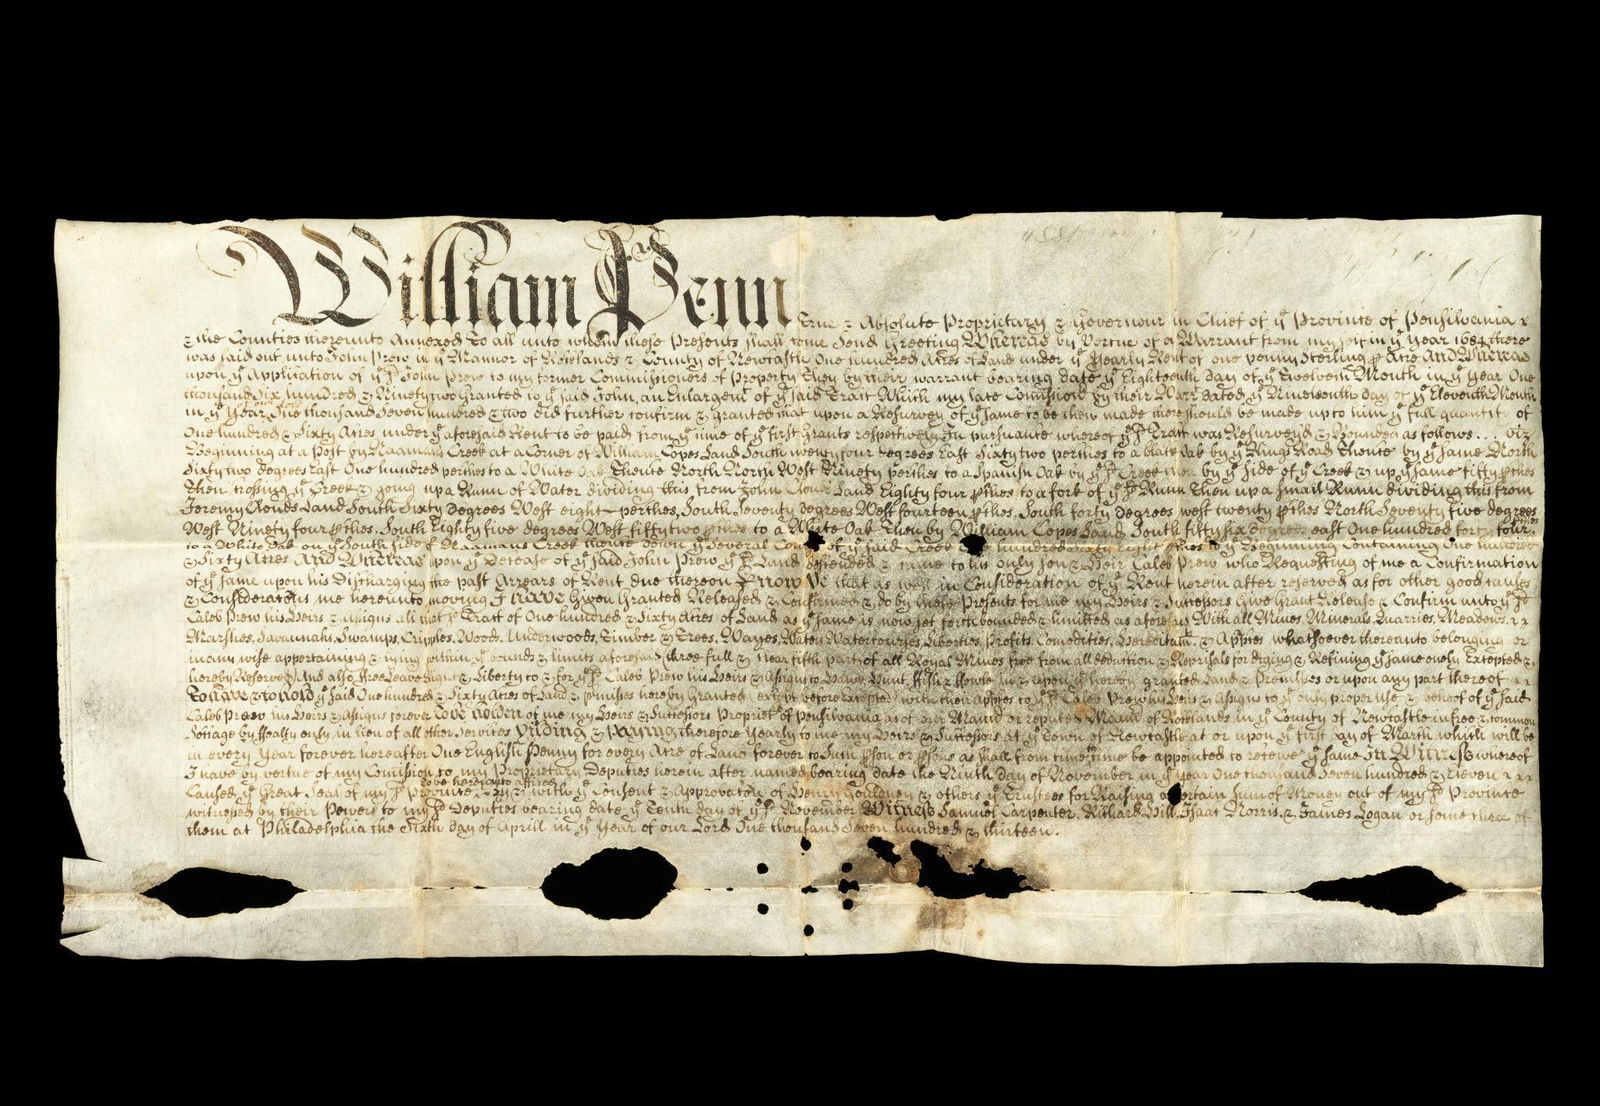 William Penn
True & Absolute Proprietary & Governour in Chief of ye Province of Pensilvania
& the Counties thereunto Annexed To all unto whom these Presents shall come Send Greeting Whereas by Vertue of a Warrant from my self in ye year 1684 there
was laid out unto John Prew in ye Mannor of Rocklands & County of Newcastle One hundred Acres of Land under ye Yearly Rent of one penny Sterling Acre And Whereas
upon ye Application of ye sd John Prew to my former Commissioners of Property They by their warrant bearing date ye Eighteenth day of ye Twelveth Month in ye year One
thousand Six hundred & Ninety two Granted to ye said John, an Enlargemt of ye said Tract Which my late Commissrs by their Warrt dated ye Nineteenth Day of ye Eleventh Month
in ye year One thousand Seven hundred & two did further confirm & Granted that upon a Resurvey of ye same to be then made there should be made up to him ye full quantity of
One hundred & Sixty Acres under ye aforesaid Rent to be paid from ye time of ye first Grants respectively In pursuance whereof ye sd Tract was Resurvey'd & Bounded as follows... viz
Beginning at a Post by Naamans Creek at a Corner of William Copes Land South twenty four degrees East Sixty two perches to a black Oak by ye Kings Road Thence by ye same North
Sixty two degrees East One hundred perches to a White Oak Thence North North West Ninety perches to a Spanish Oak by ye sd Creek then by ye side of ye Creek & up ye same fifty pches
Then crossing ye Creek & going up a Runn of Water dividing this from John Clouds Land Eighty four pches to a fork of ye sd Runn Then up a small Runn dividing this from
Jeremy Clouds Land South Sixty degrees West eight perches, South Seventy degrees West fourteen pches, South forty degrees west twenty pches North Seventy five degrees
West Ninety four pches, South Eighty five degrees West fifty two pches to a White Oak Then by William Copes Land South fifty six degrees east One hundred forty four
to a White Oak on ye South side of Naamans Creek thence down ye Several of ye said Creek hundred sixty eight pches to ye Beginning Containing One hundred
& Sixty Acres And Whereas upon ye Decease of ye said John Prew ye sd Land descended & came to his only Son & Heir Caleb Prew who Requesting of me a Confirmation
of ye same upon his Discharging the past Arrears of Rent due thereon Know Ye that as well in Consideration of ye Rent herein after reserved as for other good causes
& Considerations me hereunto moving I have Given Granted Released & Confirmed & do by these Presents for me my Heirs & Successors Give Grant Release & Confirm unto ye sd
Caleb Prew his Heirs & Assigns all that sd Tract of One hundred & Sixty Acres of Land as ye same is now set forth bounded & limitted as aforesaid With all Mines, Minerals Quarries, Meadows
Marshes, Savannahs, Swamps, Cripples, Woods, Underwoods, Timber & Trees, Wayes, Waters Watercourses Liberties, Profits, Comodities, Hereditamts & Appces whatsoever thereunto belonging or
in any wise appertaining & lying within ye bounds & limits aforesaid (three full & clear fifth parts of all Royal Mines free from all deduction & Reprisals for diging & Refining ye same only Excepted &
hereby Reserved) And also free Leave Right & Liberty to & for ye sd Caleb Prew his Heirs & Assigns to Hawk, Hunt, Fish & Fowle in & upon ye hereby granted Land & Premisses or upon any part thereof
To have & to hold ye said One hundred & Sixty Acres of Land & pmisses hereby Granted (except before excepted) with their appces to ye sd Caleb Prew his Heirs & Assigns to ye only proper use & behoof of ye said
Caleb Prew his Heirs & Assigns forever To be holden of me my Heirs & Successors Propriets of Pensilvania as of our Mannr or reputed Mannr of Rocklands in ye County of Newcastle in free & common
Soccage by fealty only in lieu of all other Services Yielding & Paying therefore yearly to me my Heirs & Successors at ye Town of Newcastle at or upon ye first day of March which will be
in every Year forever hereafter One English Penny for every Acre of Land forever to Such pson or psons as shall from time to time be appointed to receive ye same In Witness whereof
I have by vertue of my Comission to my Proprietary Deputies herein after named bearing date the Ninth day of November in ye year One thousand Seven hundred & Eleven
to be hereunto affixed
Caused ye Great Seal of my sd Province, by & with ye Consent & Approbation of Henry Gouldney & others ye Trustees for Raising a certain Sum of Money out of my sd Province
witnessed by their Powers to my sd Deputies bearing date ye Tenth day of ye sd November Witness Samuel Carpenter, Richard Hill, Isaac Norris, & James Logan or some three of
them at Philadelphia the Sixth day of Aprill in ye Year of our Lord One thousand Seven hundred & thirteen.